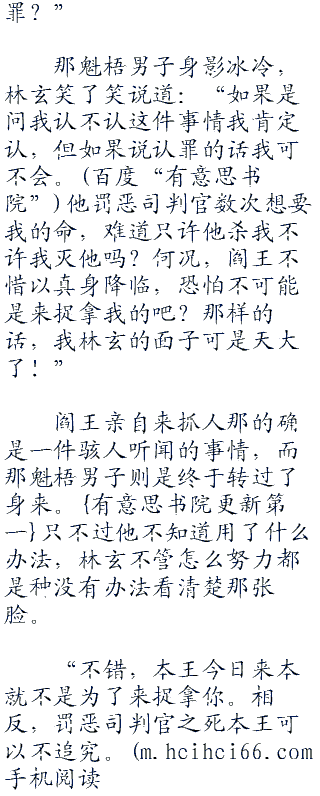 罪？”
那魁梧男子身影冰冷，
林玄笑了笑说道：“如果是
问我认不认这件事情我肯定
认，但如果说认罪的话我可
不会。(百度“有意思书
院”)他罚恶司判官数次想要
我的命，难道只许他杀我不
许我灭他吗？何况，阎王不
惜以真身降临，恐怕不可能
是来捉拿我的吧？那样的
话，我林玄的面子可是天大
了！”
阎王亲自来抓人那的确
是一件骇人听闻的事情，而
那魁梧男子则是终于转过了
身来。{有意思书院更新第
一}只不过他不知道用了什么
办法，林玄不管怎么努力都
是种没有办法看清楚那张
脸。
“不错，本王今日来本
就不是为了来捉拿你。相
反，罚恶司判官之死本王可
以不追究。(m.hcihci66.com
手机阅读